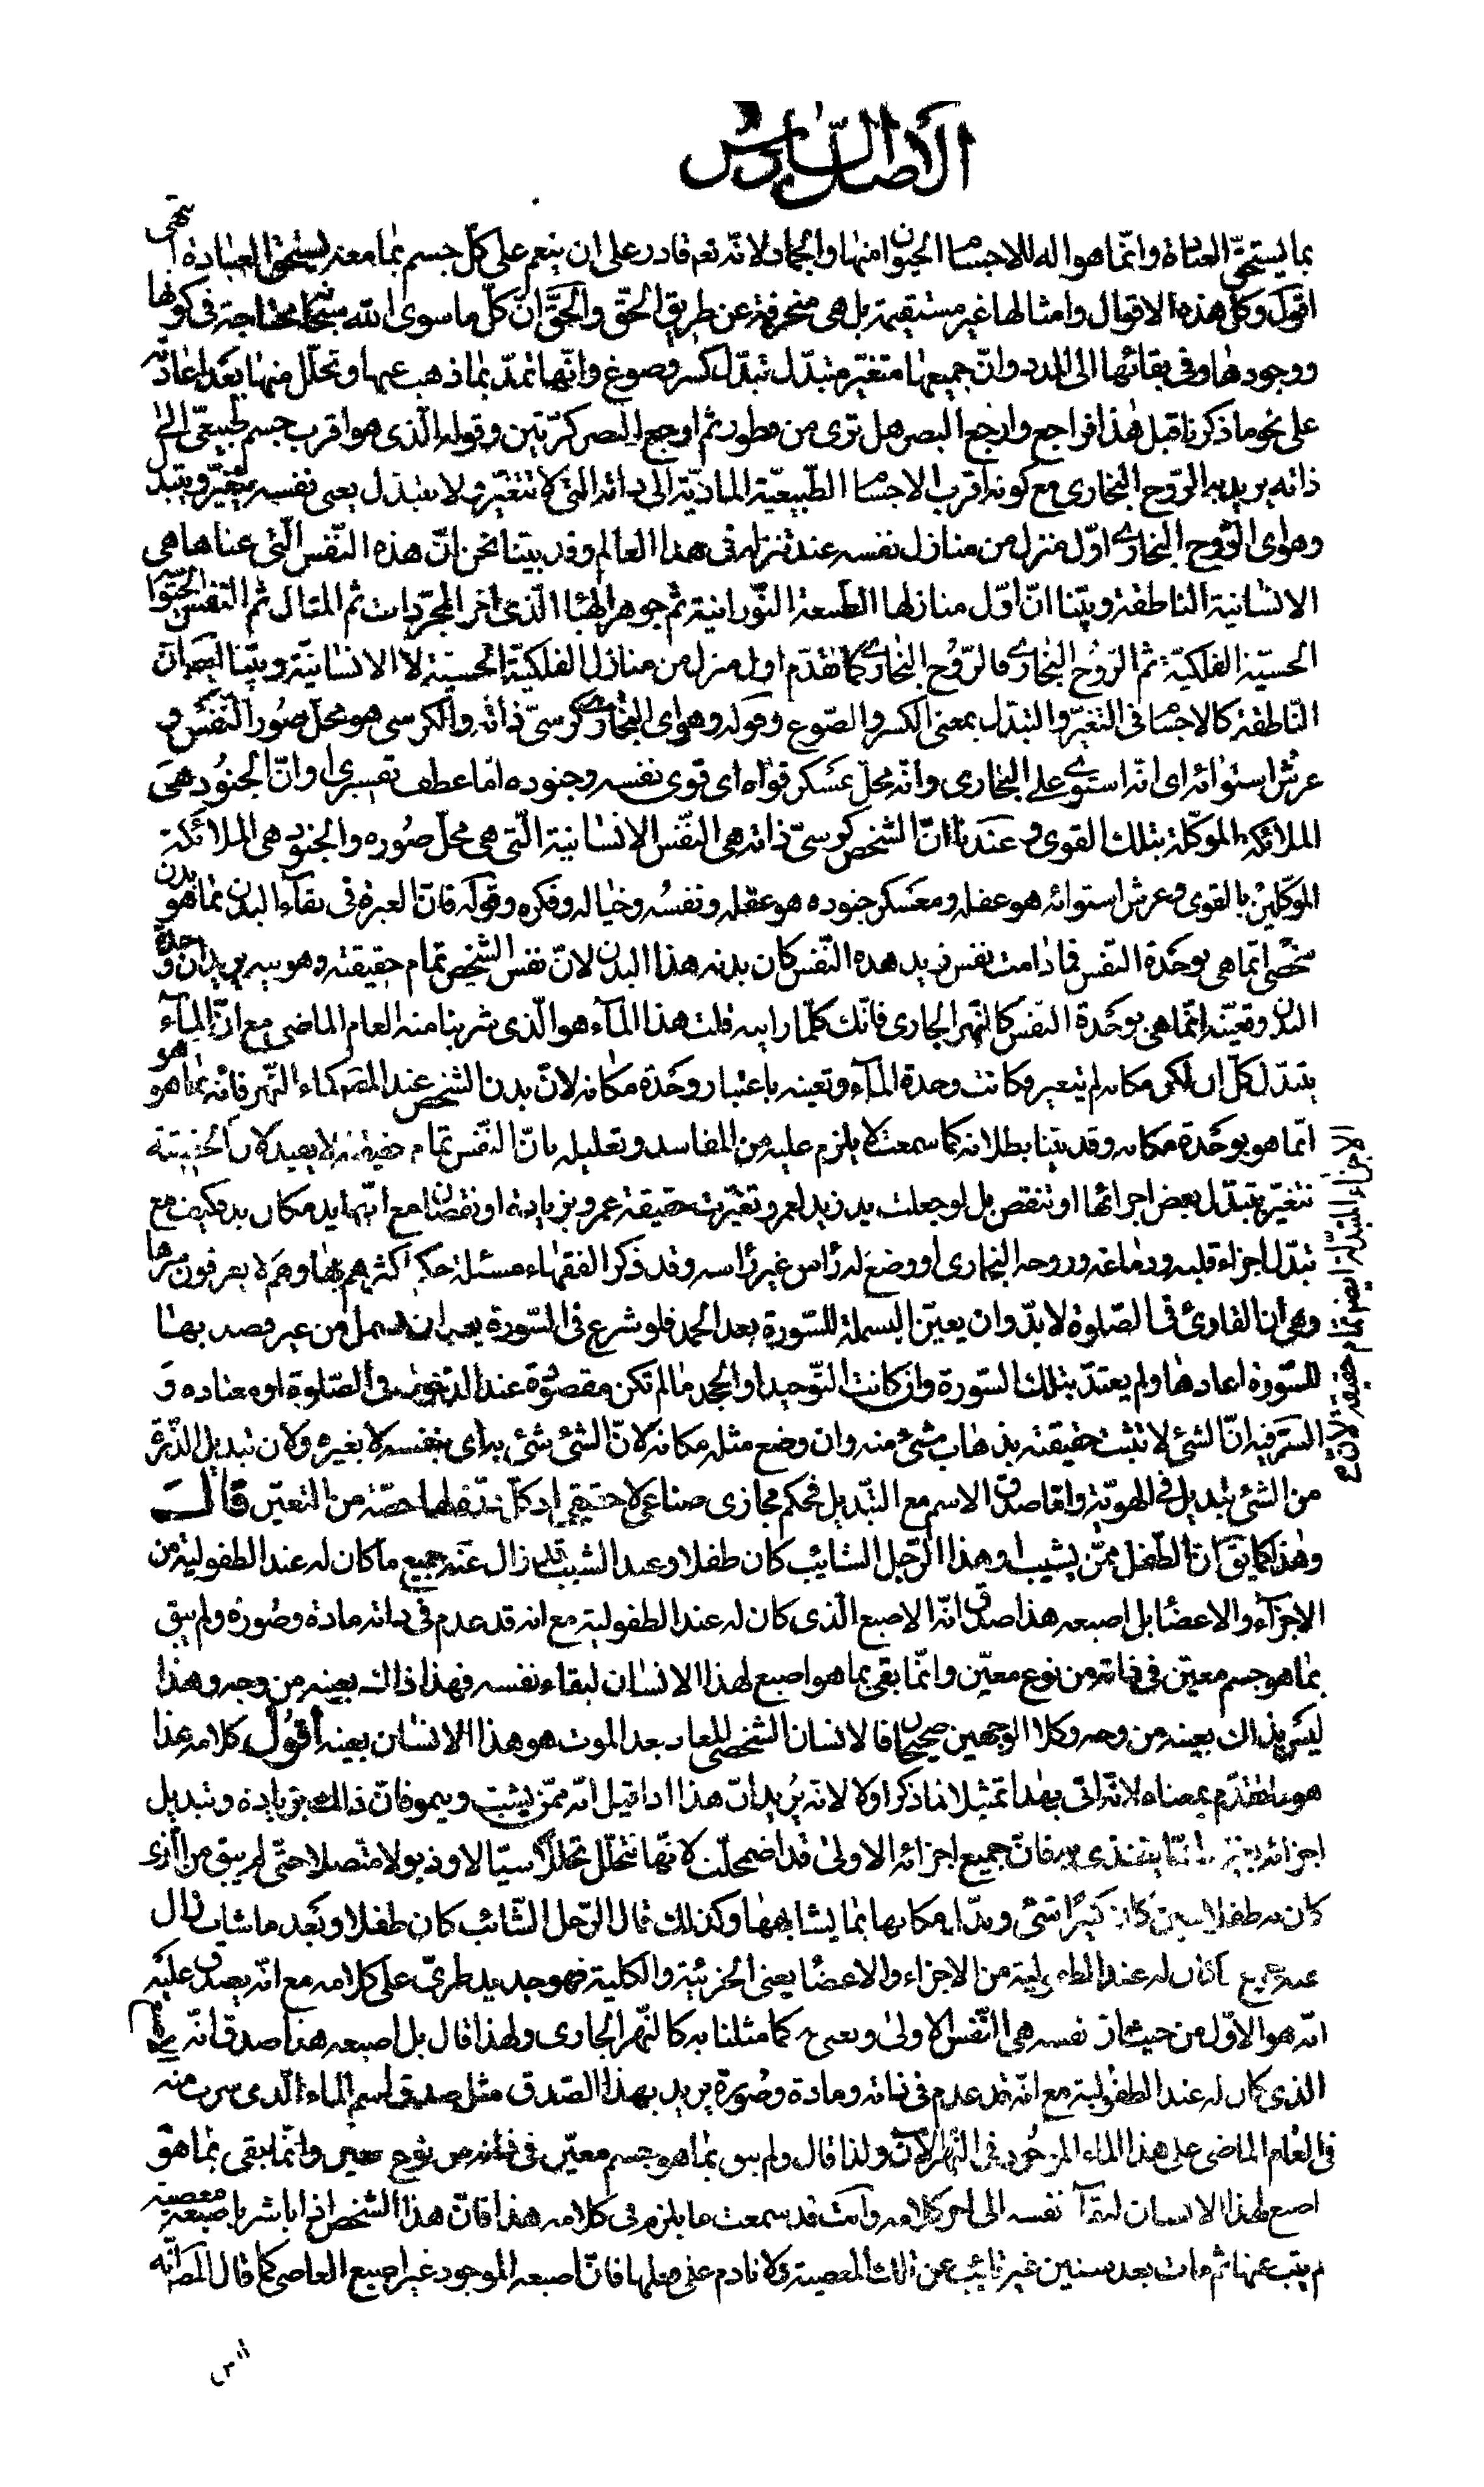 الاصل السادس
بما يستحق العبادة وانّما هو اله للاجسام الحيوان منها والجماد لانّه تعم قادر على ان ينعم على كلّ جسم بما معه يستحق العبادة انتهى
اقول وكلّ هذه الاقوال وامثالها غير مستقيمة بل هى منحرفة عن طريق الحقّ والحقّ انّ كلّ ما سوى اللّه سبحانه محتاجة فى كونها
ووجودها وفى بقائها الى المدد وانّ جميعها متغيّر متبدّل تبدّل كسر وصوغ وانّها تمدّ بما ذهب عنها وتحلّل منها بعد اعادته
على نحو ما ذكرنا قبل هذا فراجع وارجع البصر هل ترى من فطور ثم ارجع البصر كرّتين وقوله الّذى هو اقرب جسم طبيعىّ الى
ذاته يريد به الرّوح البخارى مع كونه اقرب الاجسام الطّبيعيّة المادّيّة الى ذاته التى لا تتغيّر ولا تتبدّل يعنى نفسه يتغيّر ويتبدّل
وهو اى الرّوح البخارى اوّل منزل من منازل نفسه عند تنزله فى هذا العالم وقد بيّنا نحن انّ هذه النّفس الّتى عناها هى
الانسانية الناطقة وبيّنا انّ اوّل منازلها الطبيعة النّورانية ثم جوهر الهباء الّذى اخر المجرّدات ثم المثال ثم النّفس الحيوانية
الحسيّة الفلكيّة ثم الرّوح البخارى فالرّوح البخارى كما تقدّم اول منزل من منازل الفلكيّة الحسيّة لا الانسانيّة وبيّنا ايضا انّ
النّاطقة كالاجسام فى التغيّر والتبدّل بمعنى الكسر والصّوغ وقوله وهو اى البخارى كرسىّ ذاته والكرسى هو محلّ صور النّفس و
عرش استوائه اى انّه استوى على البخارى وانّه محلّ عسكر قواه اى قوى نفسه وجنوده امّا عطف تفسيرى او انّ الجنود هى
الملائكة الموكّلة بتلك القوى وعندنا انّ الشخص كرسىّ ذاته هى النّفس الانسانية الّتى هى محلّ صوره والجنود هى الملائكة
الموكّلين بالقوى وعرش استوائه هو عقله ومعسكر جنوده هو عقله ونفسه وخياله وفكره وقوله فانّ العبرة فى بقاء البدن بما هو بدن
شخصى انّما هى بوحدة النّفس فما دامت نفس زيد هذه النّفس كان بدنه هذا البدن لانّ نفس الشخص تمام حقيقته وهويته يريد انّ وحدة
البدن وتعيّنه انّما هى بوحدة النّفس كالنّهر الجارى فانّك كلّما رايته قلت هذا الماء هو الّذى شربنا منه العام الماضى مع انّ الماء
يتبدّل كلّ ان لكن مكانه لم يتغير فكانت وحدة الماء وتعينه باعتبار وحدة مكانه لانّ بدن الشخص عند المصّ كماء النّهر فانّه بما هو هو
انّما هو بوحدة مكانه وقد بيّنا بطلانه كما سمعت لا يلزم عليه من المفاسد وتعليله بانّ النّفس تمام حقيقته لا يفيده لانّ الحقيقة
تتغيّر بتبدّل بعض اجزائها او تنقص بل لو جعلت يد زيد لعمرو تغيّرت حقيقة عمرو بزيادة او نقصان مع انّها يد مكان يد فكيف مع
تبدّل اجزاء قلبه ودماغه وروحه البخارى او وضع له رأس غير رأسه وقد ذكر الفقهاء مسئلة حكم اكثرهم بها وهم لا يعرفون سرها
وهى ان القارئ فى الصّلوة لا بدّ وان يعيّن البسملة للسّورة بعد الحمد فلو شرع فى السّورة بعد ان بسمل من غير قصد بها
للسّورة اعادها ولم يعتدّ بتلك السّورة وان كانت التّوحيد او الجحد ما لم تكن مقصودة عند الدخول فى الصّلوة او معتاده و
السّر فيه انّ الشئ لا تثبت حقيقته بذهاب شئ منه وان وضع مثله مكانه لانّ الشئ شئ بذاى بنفسه لا بغيره ولان تبديل الذّرّة
من الشئ تبديل فى الهويّة وامّا صدق الاسم مع التّبديل فحكم مجازى صناعى لا حقيقى اذ كلّ ذرّة لها حصّة من التّعيّن قال
وهذا كما يق انّ الطّفل ممّن يشيب او هذا الرّجل الشائب كان طفلا وعند الشيب قد زال عنه جميع ما كان له عند الطفولية من
الاجزاء والاعضا بل اصبعه هذا صدق انّه الاصبع الّذى كان له عند الطفولية مع انه قد عدم فى ذاته مادة وصورة ولم يبق
بما هو جسم معيّن فى ذاته من نوع معيّن وانّما بقى بما هو اصبع لهذا الانسان لبقاء نفسه فهذا ذاك بعينه من وجه وهذا
ليس بذاك بعينه من وجه وكلا الوجهين صحيحان فالانسان الشخصى المعاد بعد الموت هو هذا الانسان بعينه أقول كلامه هذا
هو ما تقدّم بمعناه لانّه اتى بهذا تمثيلا لما ذكر اولا لانّه يريد انّ هذا اذا قيل انّه ممّن يشيب وينمو فانّ ذلك بزيادة وتبديل
اجزائه يتغذى به فانّ جميع اجزائه الاولى قد اضمحلّت لانّها تتحلّل تحللا سيّالا وذبولا متّصلا حتّى لم يبق من الّذى
كان به طفلا شئ وبدّل مكانها بما يشابهها وكذلك قال الرّجل الشّائب كان طفلا وبعد ما شاب زال
عنه جميع ما كان له عند الطفولية من الاجزاء والاعضا يعنى الجزئية والكلية فهو جديد طرىّ على كلامه مع انّه يصدق عليه
انّه هو الاوّل من حيث ان نفسه هى النّفس الاولى كما مثلنا به كالنّهر الجارى ولهذا قال بل اصبعه هذا صدق انّه الاصبع
الذى كان له عند الطفولية مع انّه قد عدم فى ذاته ومادة وصورة يريد بهذا الصّدق مثل صدق اسم الماء الّذى شرب منه
فى العام الماضى على هذا الماء الموجود فى النّهر الآن ولذا قال ولم يبق بما هو جسم معيّن فى ذاته من نوع معين وانّما بقى بما هو
اصبع لهذا الانسان لبقاء نفسه الى اخر كلامه وانت قد سمعت ما يلزم فى كلامه هذا فانّ هذا الشخص اذا باشر باصبعه معصية
لم يتب عنها ثم مات بعد سنين غير تائب عن تلك المعصية ولا نادم على فعلها فانّ اصبعه الموجود غير اصبع العاصى كما قال المصّ انّه
الاجزاء المتبدّلة ايضا تمام حقيقته لانّ
٣١١